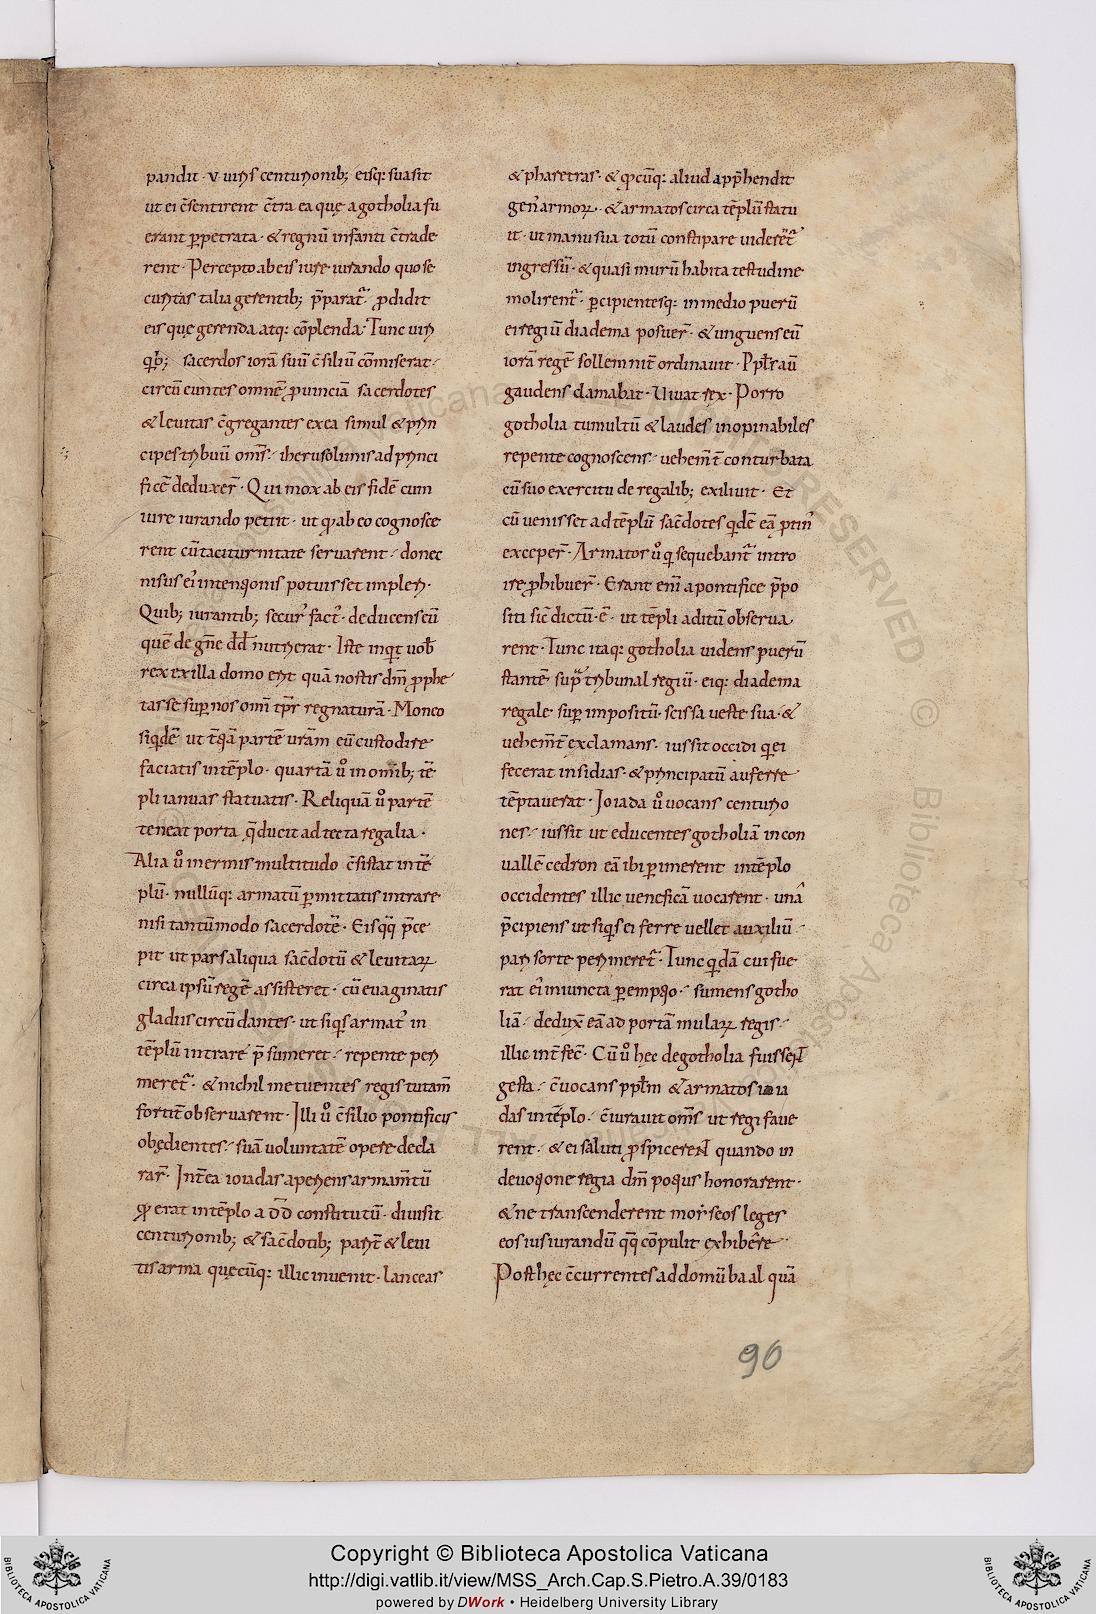 pandit · v · uiris centurionib; eisq: suasit
ut ei c̄sentirent c̄tra ea quę a gotholia fu
erant ꝑpetrata · & regnū infanti c̄trade
rent · Percepto ab eis iure iurando quo se
curitas talia gerentib; p̄parat᷑ · ꝓdidit
eis quę gerenda atq: cōplenda · Tunc uiri
qb; sacerdos ioram suū c̄siliū cōmiserat ·
circū euntes omnē ꝓuinciā sacerdotes
& leuitas c̄gregantes ex ea simul & prin
cipes tribuū om̄s · iherusolimis ad princi
ficē deduxer̄ · Qui mox ab eis fidē cum
iure iurando petiit · ut q ab eo cognosce
rent cū taciturnitate seruarent · donec
nisus ei᾽ intentionis potuisset impleri ·
Quib; iurantib; secur᾽ fact᾽ · deducens eū
quē de gn̄e dd̄ nutrierat · Iste inqt uob̄
rex ex illa domo erit quā nostis dm̄ ꝓphe
tasse suꝑ nos om̄i tp̄r regnaturā · Moneo
siqdē ut t̄tiā partē ur̄am eū custodire
faciatis in tēplo · quartā u᷒ in omīb; tē
pli ianuas statuatis · Reliquā u᷒ partē
teneat porta q̄ ducit ad tecta regalia ·
Alia u᷒ inermis multitudo c̄sistat in tē
plū · nullūq: armatū ꝑmittatis intrare
nisi tantūmodo sacerdotē · Eisqq̄ p̄ce
pit ut pars aliqua sac̄dotū & leuitaꝝ
circa ipsū regē assisteret · cū euaginatis
gladiis circūdantes · ut siqs armat᾽ in
tēplū intrare p̄sumeret · repente peri
meret᷑ · & nichil metuentes regis tutam̄
fortit̄ obseruarent · Illi u᷒ c̄silio pontificis
obędientes · suā voluntatē opere decla
rar̄ · Int̄ea ioiadas aperiens armam̄tū
qd̄ erat in tēplo a dd̄ constitutū · diuisit
centurionib; & sac̄dotib; parit̄ & leui
tis arma quęcūq: illic inuenit · lanceas
& pharetras · & qcūq: aliud app̄hendit
gen᾽ armoꝝ · & armatos circa tēplū statu
it · ut manu sua totū constipare uiderēt᷑
ingressū · & quasi murū habita testudine
molirent᷑ · ꝑcipientesq: in medio puerū
ei regiū diadema posuer̄ · & unguens eū
iorā regē sollemnit̄ ordinauit · Ppl̄s aū
gaudens clamabat · Uiuat rex · Porro
gotholia tumultū & laudes inopinabiles
repente cognoscens · uehem̄t̄ conturbata
cū suo exercitu de regalib; exiliuit · Et
cū uenisset ad tēplū sac̄dotes qdē eā ptin᾽
exceper̄ · Armatos u᷒ q sequebant᷑ intro
ire ꝓhibuer̄ · Erant eni᷑ a pontifice p̄po
siti sic̄ dictū · ē · ut tēpli aditū obserua
rent · Tunc itaq: gotholia uidens puerū
stantē supra tribunal regiū · eiq: diadema
regale suꝑ impositū · scissa ueste sua · &
uehem̄t̄ exclamans · iussit occidi q ei
fecerat insidias · & principatū auferre
tēptauerat · Ioiada u᷒ uocans centurio
nes · iussit ut educentes gotholiā in con
uallē cedron eā ibi ꝑimerent in tēplo
occidentes illic ueneficā uocarent · unā
p̄cipiens ut siqs ei ferre uellet auxiliū ·
pari sorte perimeret᷑ · Tunc qdā cui fue
rat ei᾽ iniuncta ꝑemptio · sumens gotho
liā · dedux̄ eā ad portā mulaꝝ regis ·
illic int̄fec̄ · Cū u᷒ hec de gotholia fuissent
gesta · c̄uocans ppl̄m & armatos ioia
das in tēplo · c̄iurauit om̄s ut regi faue
rent · & ei saluti ꝓspicerent quando in
deuotione regia dm̄ potius honorarent ·
& ne transcenderent moyseos leges
eos iusiurandū qq̄ cōpulit exhibēre ·
Post hęc c̄currentes ad domū baal quā
90
Copyright © Biblioteca Apostolica Vaticana
http://digi.vatlib.it/view/MSS_Arch.Cap.S.Pietro.A.39/0183
powered by DWork • Heidelberg University Library